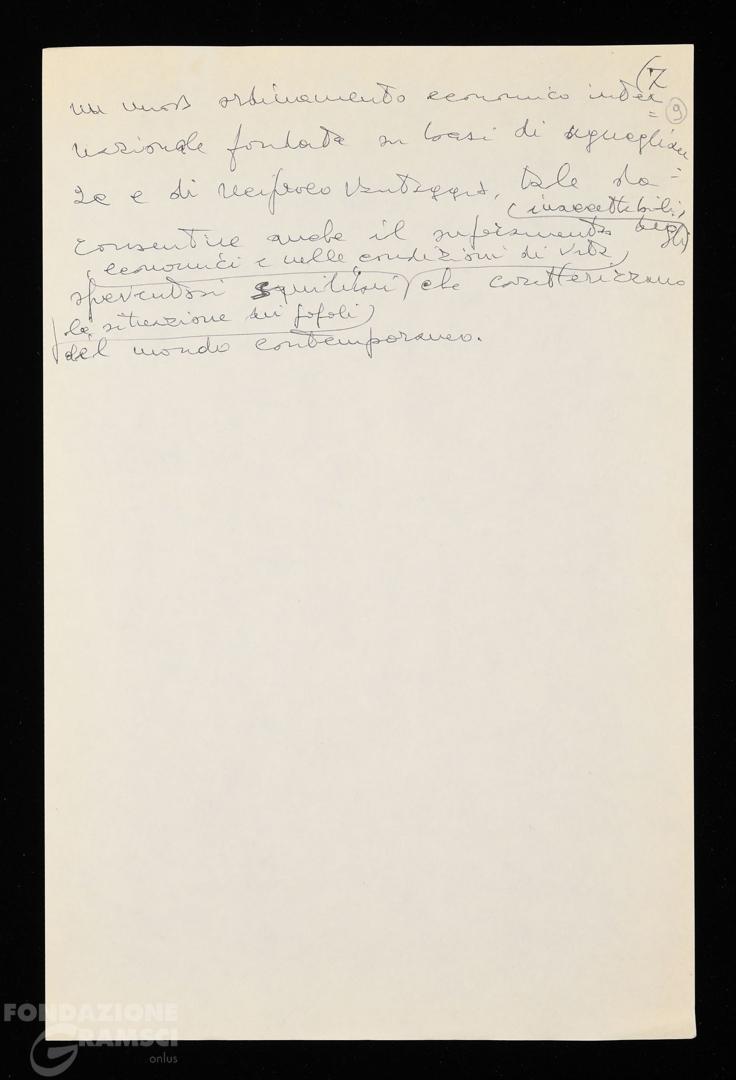 (7
un nuovo ordinamento economico inter=
9
nazionale fondato su basi di uguaglian=
za e di reciproco vantaggio, tale da
(inaccettibili,
consentire anche il superamento degli
(economici e nelle condizioni di vita,
spaventosi squilibri) che caratterizzano
(la situazione dei popoli)
del mondo contemporaneo.
FONDAZIONE
GRAMSCI
onlus